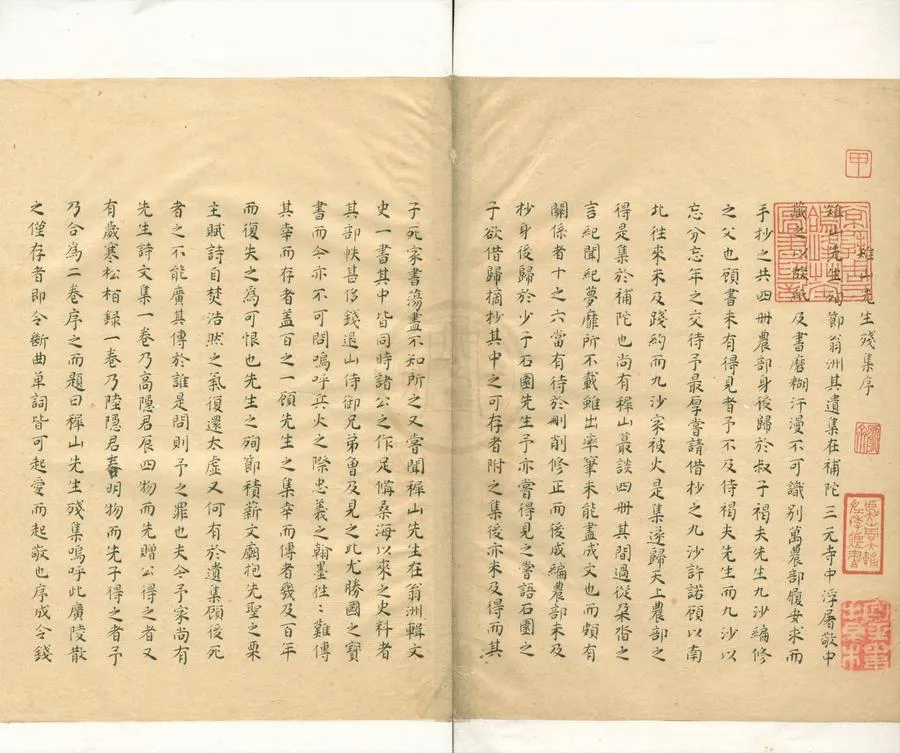 甲
穉山先生殘集序
穉山先生殉節翁洲其遺集在補陀三元寺中浮屠敬中
藏之以故紙及書磨糊汗漫不可識別萬農部履安求而
手抄之共四册農部身後歸於叔子褐夫先生九沙編修
之父也顧書未有得見者予不及侍褐夫先生而九沙以
忘分忘年之交待予最厚嘗請借抄之九沙許諾顧以南
北往來未及踐約而九沙家被火是集遂歸天上農部之
得是集於補陀也尚有穉山叢談四册其間過從之
言紀聞紀夢靡所不載雖出率筆未能盡成文也而頗有
關係者十之六當有待於刪削修正而後成編農部未及
抄身後歸於少子石園先生予亦嘗得見之嘗語石園之
子欲借歸摘抄其中之可存者附之集後亦未及得而其
子死家書蕩盡不知所之又嘗聞穉山先生在翁洲輯文
史一書其中皆同時諸公之作足備桑海以來之史料者
其部帙甚侈錢退山侍御兄弟曾及見之此尤勝國之寶
書而今亦不可問嗚呼兵火之際忠義之翰墨往：難傳
其幸而存者盖百之一顧先生之集幸而傳者幾及百年
而復失之為可恨也先生之殉節積薪文廟抱先聖之栗
主賦詩自焚浩然之氣復還太虛又何有於遺集顧後死
者之不能廣其傳於誰是問則予之罪也夫今予家尚有
先生詩文集一卷乃高隱君辰四物而先贈公得之者又
有歲寒松栢録一卷乃陸隱君春明物而先子得之者予
乃合為二卷序之而題曰穉山先生殘集嗚呼此廣陵散
之僅存者即令斷曲單詞皆可起愛而起敬也序成令錢